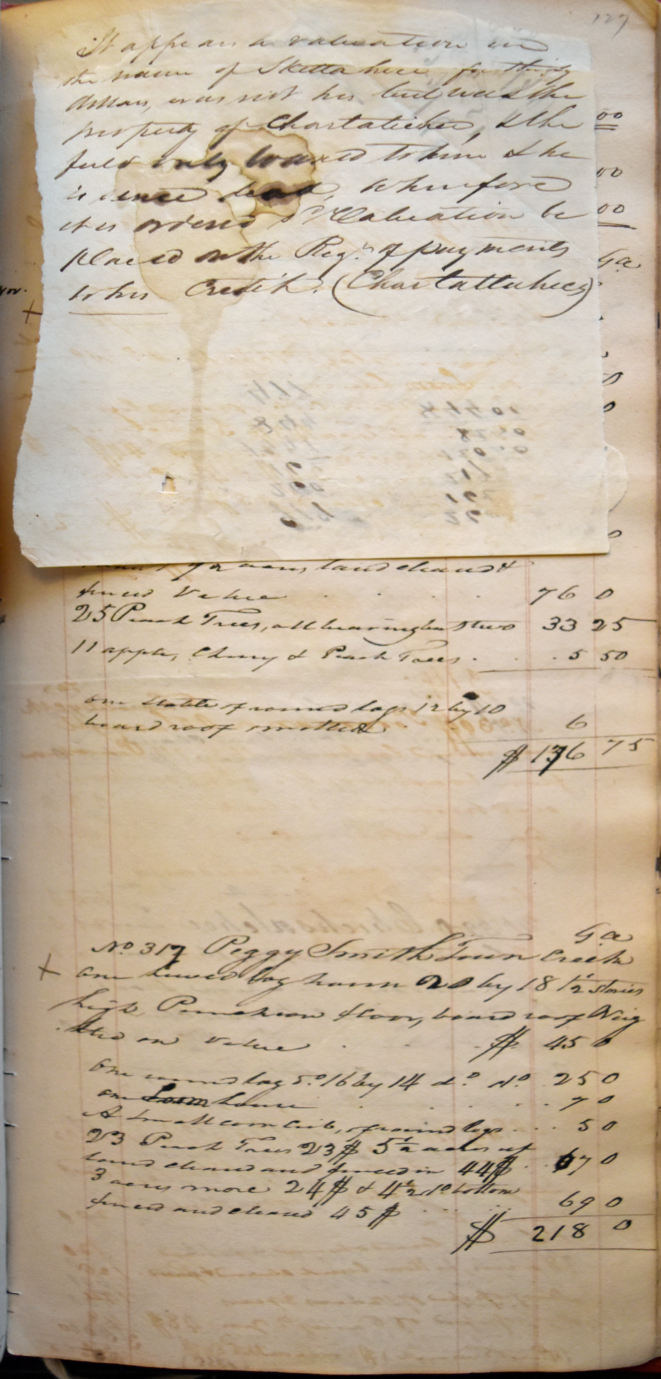 127
It appears a valuation in
the name of Sketta hee for thirty
dollars, was not his but was the
property of Chartatichee, & the
field only loaned to him & he
is since dead, wherefore
it is ordered sd. Valuation be
placed on the Regr. of payments
to his Credit. (Chartattuhee)
00
00
00
Ga
acres, land cleared &
fenced Value 76 0
25 Peach Trees, all bearing but two 33 25
11 apple, Cherry & Peach Trees 5 50
one stable of round logs 12 by 10
board roof 6
$ 136 75
Ga
No 317 Peggy Smith Town Creek
+ one hewed log house 20 by 18 1½ stories
high Puncheon floor, board roof
on Value $ 45 0
one round log do 16 by 14 do do 25 0
one house 7 0
A small corn crib, of round logs 5 0
23 Peach Trees 23$ 5½ acres of
land cleared and fenced in 44$ 67 0
3 acres more 24$ & 4½ do bottom
fenced and cleared 45$ 69 0
$ 218 0